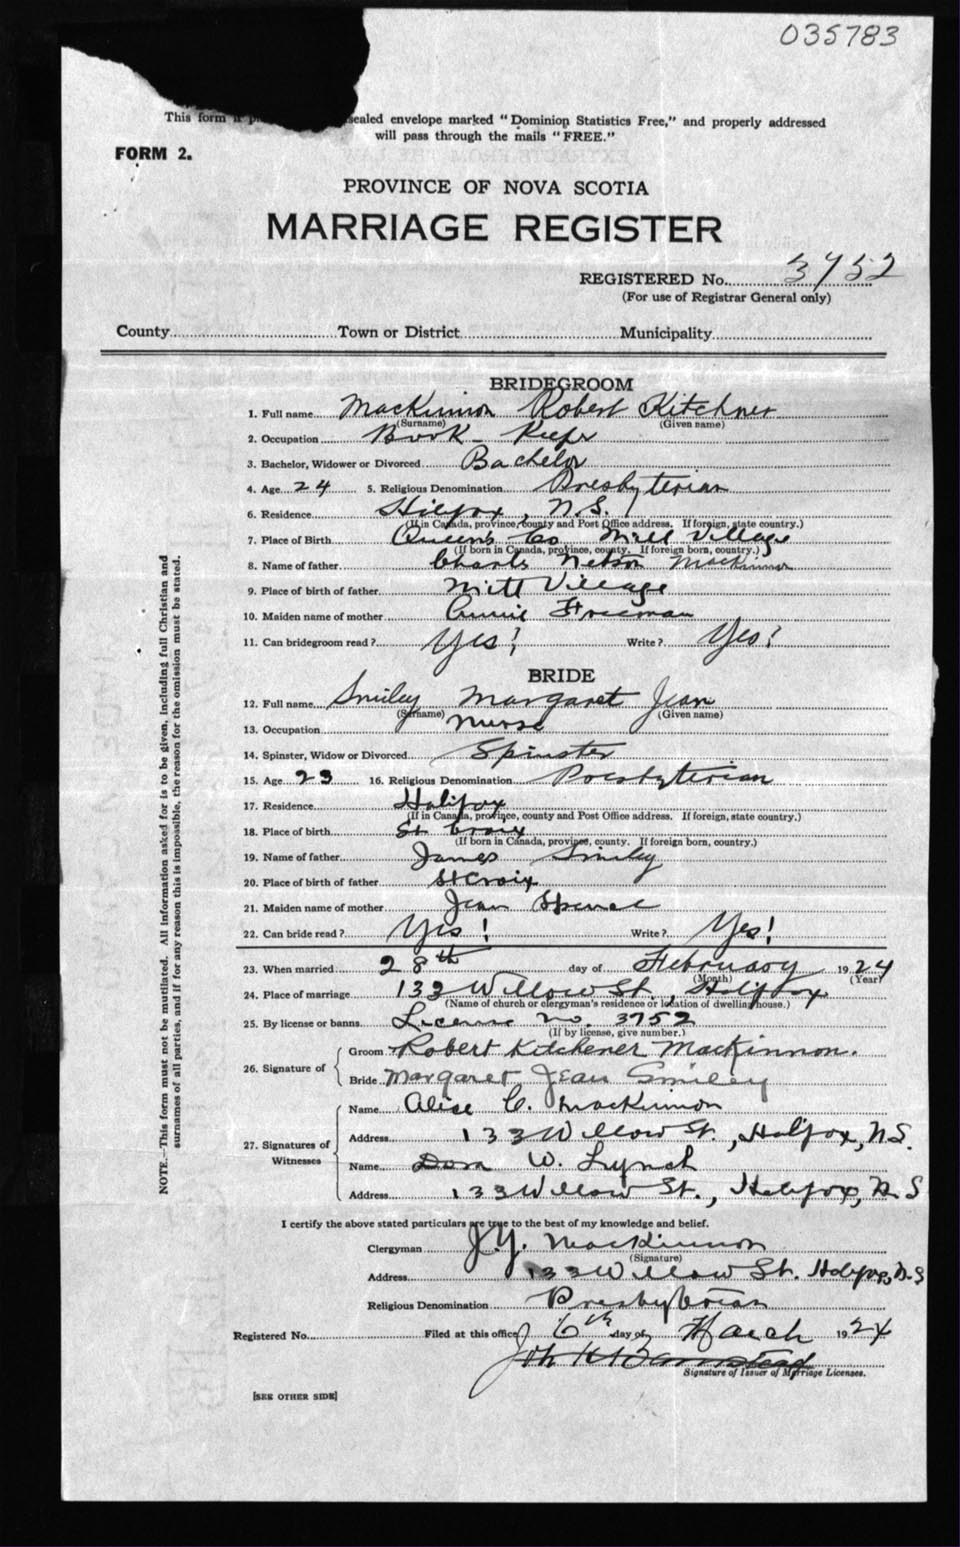 035783
This form if p sealed envelope marked "Dominion Statistics Free," and properly addressed
will pass through the mails "FREE."
FORM 2.
PROVINCE OF NOVA SCOTIA
MARRIAGE REGISTER
REGISTERED No. 3752
(For use of Registrar General only)
County Town or District Municipality
BRIDEGROOM
1. Full name MacKinnon Robert Kitchner
(Surname) (Given name)
2. Occupation Book-Keeper
3. Bachelor, Widower or Divorced Bachelor
4. Age 24 5. Religious Denomination Presbyterian
6. Residence Hilfax, N.S.
(If in Canada, province, county and Post Office address. If foreign, state country.)
7. Place of Birth Queens Co Mill Village
(If born in Canada, province, county. If foreign born, country.)
8. Name of father Charls Nelson MacKinnon
9. Place of birth of father Mill Village
10. Maiden name of mother Annie Freeman
11. Can bridegroom read? Yes! Write? Yes!
BRIDE
12. Full name Smiley Margaret Jean
(Surname) (Given name)
13. Occupation Nurse
14. Spinster, Widow or Divorced Spinster
15. Age 23 16. Religious Denomination Presbyterian
17. Residence Halifax
(If in Canada, province, county and Post Office address. If foreign, state country.)
18. Place of birth St Croix
(If born in Canada, province, county. If foreign born, country.)
19. Name of father James Smiley
20. Place of birth of father St Croix
21. Maiden name of mother Jean Spence
22. Can bride read? Yes! Write? Yes!
23. When married 28th day of February 1924
(Month) (Year)
24. Place of marriage 133 Willow St., Halifax
(Name of church or clergyman's residence or location of dwelling house.)
25. By license or banns. License No. 3752
(If by license, give number.)
26. Signature of Groom Robert Kitchener MacKinnon.
Bride Margaret Jean Smiley
27. Signatures of Witnesses Name Alice C. MacKinnon
Address 133 Willow St., Halifax, N.S.
Name Dora W. Lynch
Address 133 Willow St., Halifax, N.S
I certify the above stated particulars are true to the best of my knowledge and belief.
Clergyman J.Y. MacKinnon
(Signature)
Address 133 Willow St. Halifax, N.S
Religious Denomination Presbyterian
Registered No. Filed at this office 6th day of March 1924
Barnstead
Signature of Issuer of Marriage Licenses.
[SEE OTHER SIDE]
NOTE.—This form must not be mutilated. All information asked for is to be given, including full Christian and
surnames of all parties, and if for any reason this is impossible, the reason for the omission must be stated.